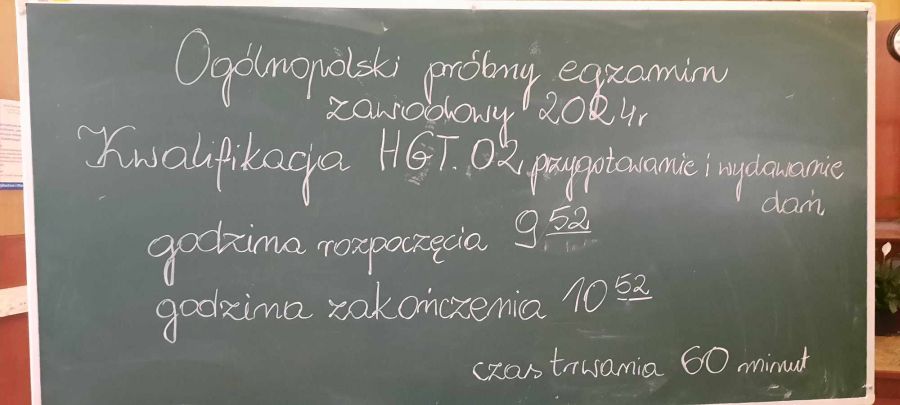 Ogólnopolski próbny egzamin
zawodowy 2024r
Kwalifikacja HGT.02 przygotowanie i wydawanie
dań
godzina rozpoczęcia 9 52
godzina zakończenia 10 52
czas trwania 60 minut